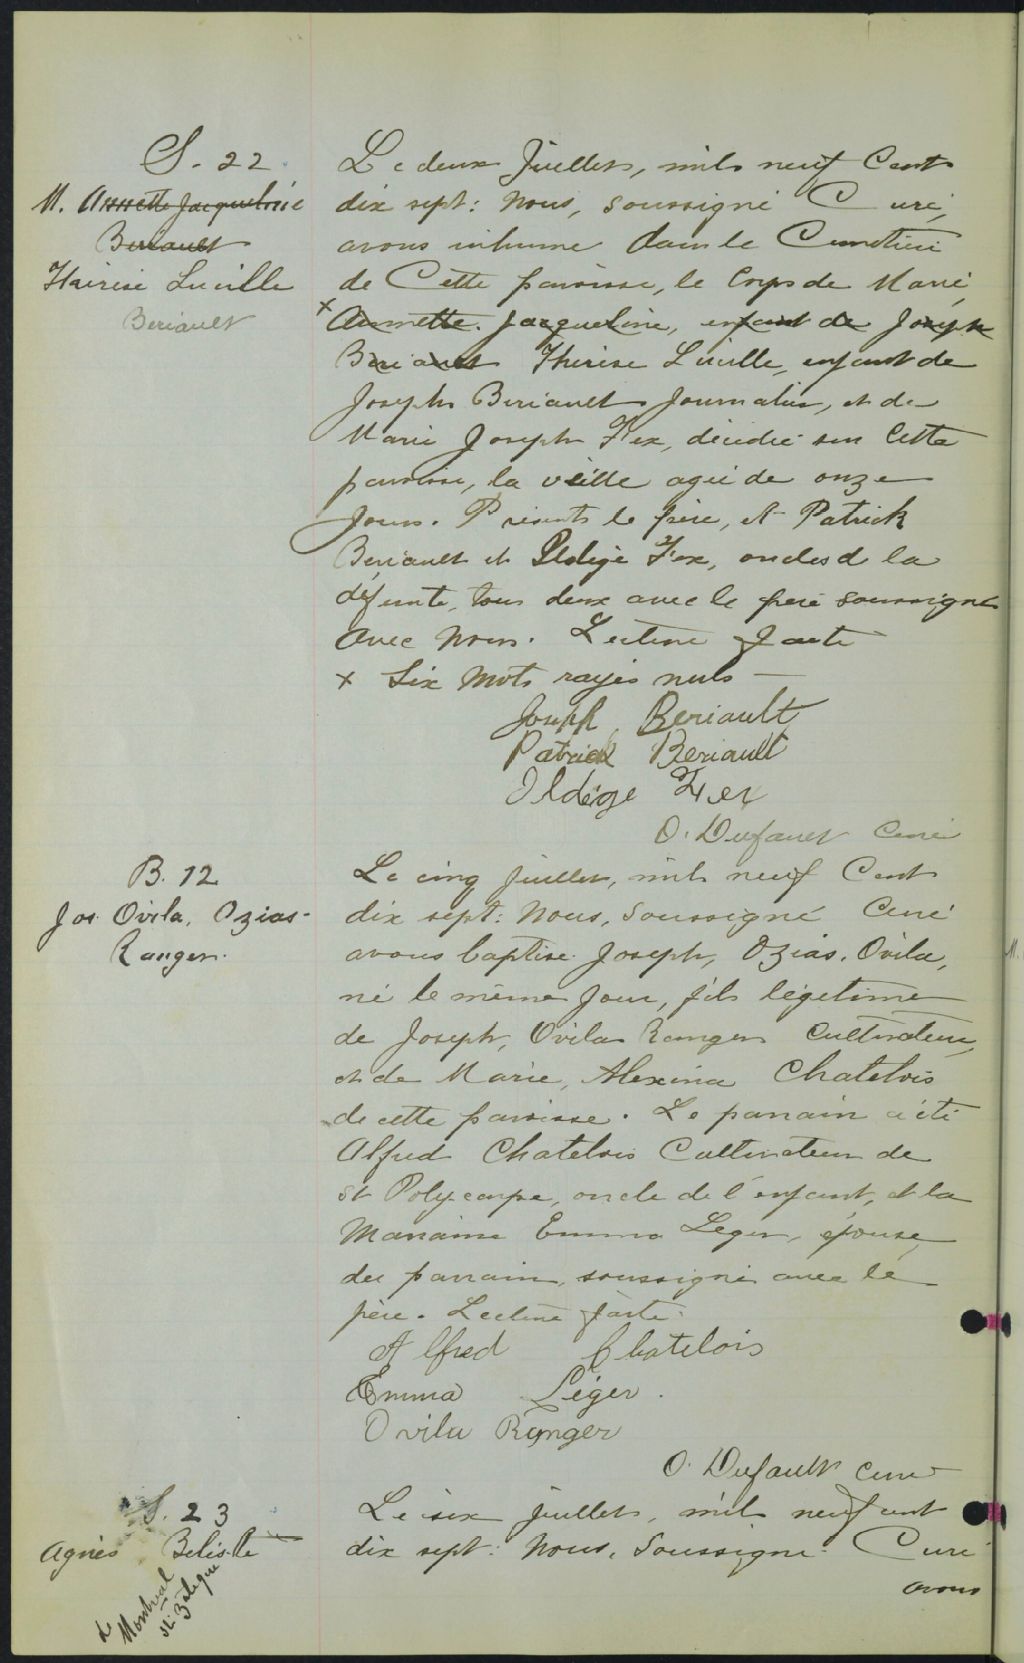 S. 22
M. Annette Jacqueline
Beriault
Thérèse Lucille
Beriault
Le deux Juillet, mil neuf Cent
dix sept: Nous, soussigné Curé,
avons inhumé dans le Cimetière
de Cette paroisse, le Corps de Marie,
x Annette. Jacqueline, enfant de Joseph
Beriault Thérèse Lucille, enfant de
Joseph Beriault Journalier, et de
Marie Joseph Fex, décédée sur Cette
paroisse, la veille agée de onze
Jours. Présents le père, et Patrick
Beriault et Ildège Fex, oncles de la
défunte, tous deux avec le père soussignés
avec Nous. Lecture faite
x Six Mots rayés nuls —
Joseph Beriault
Patrick Beriault
Ildège Fex
O. Dufault Curé
B. 12
Jos Ovila, Ozias-
Ranger.
Le cinq Juillet, mil neuf Cent
dix sept: Nous, Soussigné Curé
avons baptisé Joseph, Ozias, Ovila,
né le même Jour, fils légitime
de Joseph, Ovila Ranger Cultivateur,
et de Marie, Alexina Chatelois
de cette paroisse. Le parrain a été
Alfred Chatelois Cultivateur de
St Polycarpe, oncle de l'enfant, et la
Marraine Emma Leger, épouse
du parrain, soussigné avec le
père. Lecture faite.
Alfred Chatelois
Emma Léger.
Ovila Ranger
O. Dufault curé
S. 23
Agnès Belisle
de
Montréal
St. Zotique
Le six juillet, mil neuf cent
dix sept: Nous, Soussigné Curé
avons